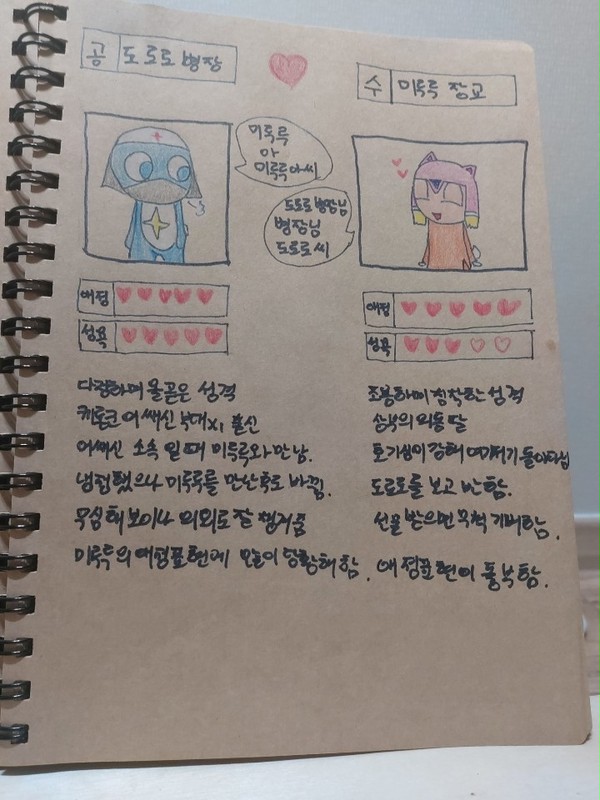 공 도로로 병장
수 미루루 장교
미루루
아
미루루아씨
도로로 병장님
병장님
도로로씨
애정
성욕
애정
성욕
다정하며 올곧은 성격
케론군 어쌔신 부대 X1 출신
어쌔신 소속 일때 미루루와 만남.
냉정했으나 미루루를 만난후로 바뀜.
무심해보이나 의외로 잘 챙겨줌
미루루의 애정표현에 많이 당황해함.
조용하며 침착한 성격
상부의 외동딸
호기심이 강해 여기저기 돌아다님
도로로를 보고 반함.
선물 받으면 무척 기뻐함.
애정표현이 풍부함.